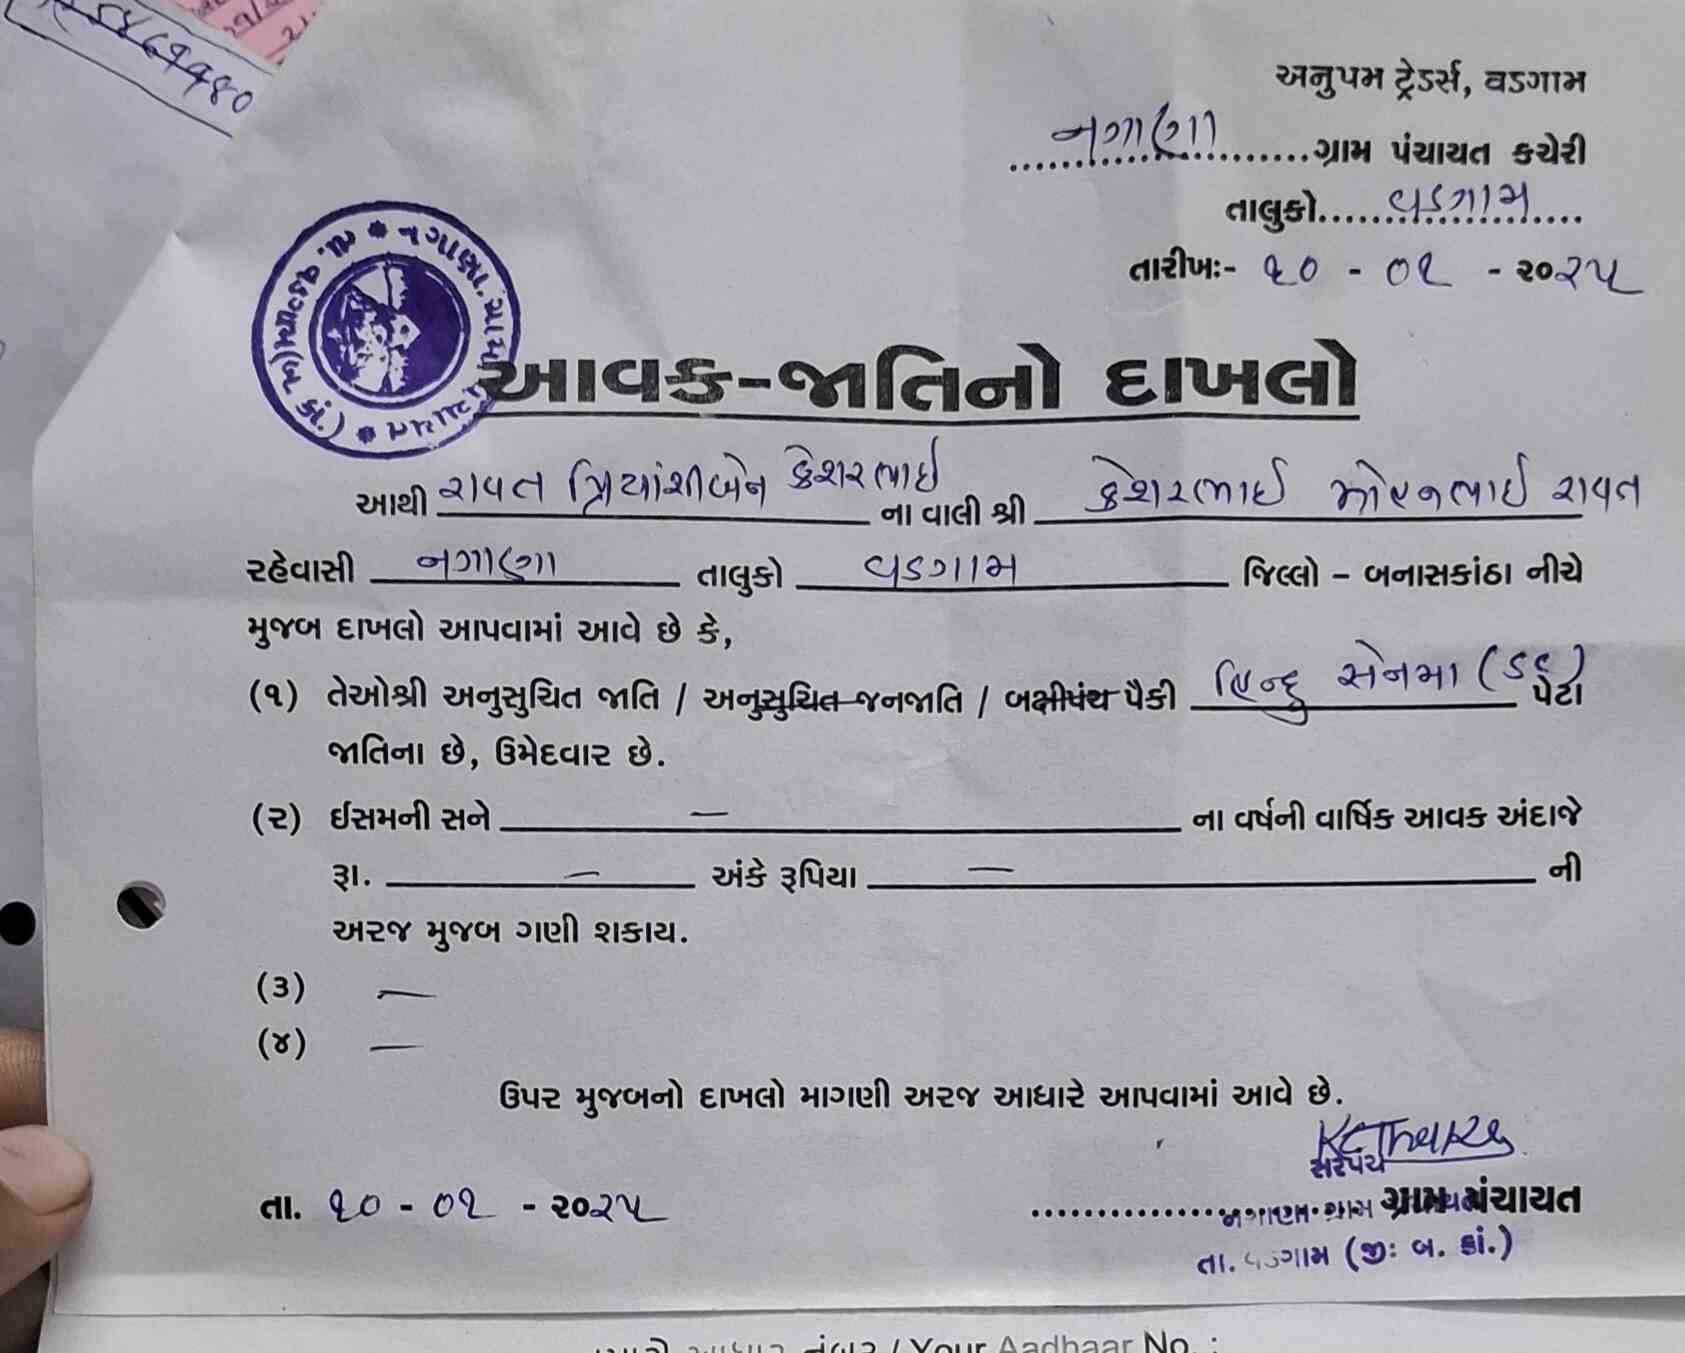 અનુપમ ટ્રેડર્સ, વડગામ
નગાણા ગ્રામ પંચાયત કચેરી
તાલુકો વડગામ
તારીખઃ- ૧૦ - ૦૧ - ૨૦૨૫
આવક-જાતિનો દાખલો
આથી રાવત પ્રિયાંશીબેન કેશરભાઇ ના વાલી શ્રી કેશરભાઇ મોહનભાઇ રાવત
રહેવાસી નગાણા તાલુકો વડગામ જિલ્લો – બનાસકાંઠા નીચે
મુજબ દાખલો આપવામાં આવે છે કે,
(૧) તેઓશ્રી અનુસુચિત જાતિ / અનુસુચિત જનજાતિ / બક્ષીપંચ પૈકી હિન્દુ સેનમા (૬૬) પેટા
જાતિના છે, ઉમેદવાર છે.
(૨) ઈસમની સને — ના વર્ષની વાર્ષિક આવક અંદાજે
રૂા. — અંકે રૂપિયા — ની
અરજ મુજબ ગણી શકાય.
(૩) —
(૪) —
ઉપર મુજબનો દાખલો માગણી અરજ આધારે આપવામાં આવે છે.
સરપંચ
તા. ૧૦ - ૦૧ - ૨૦૨૫ ગ્રામ પંચાયત
નગાણા ગ્રામ પંચાયત
તા. વડગામ (જીઃ બ. કાં.)
આધાર નંબર / Your Aadhaar No. :